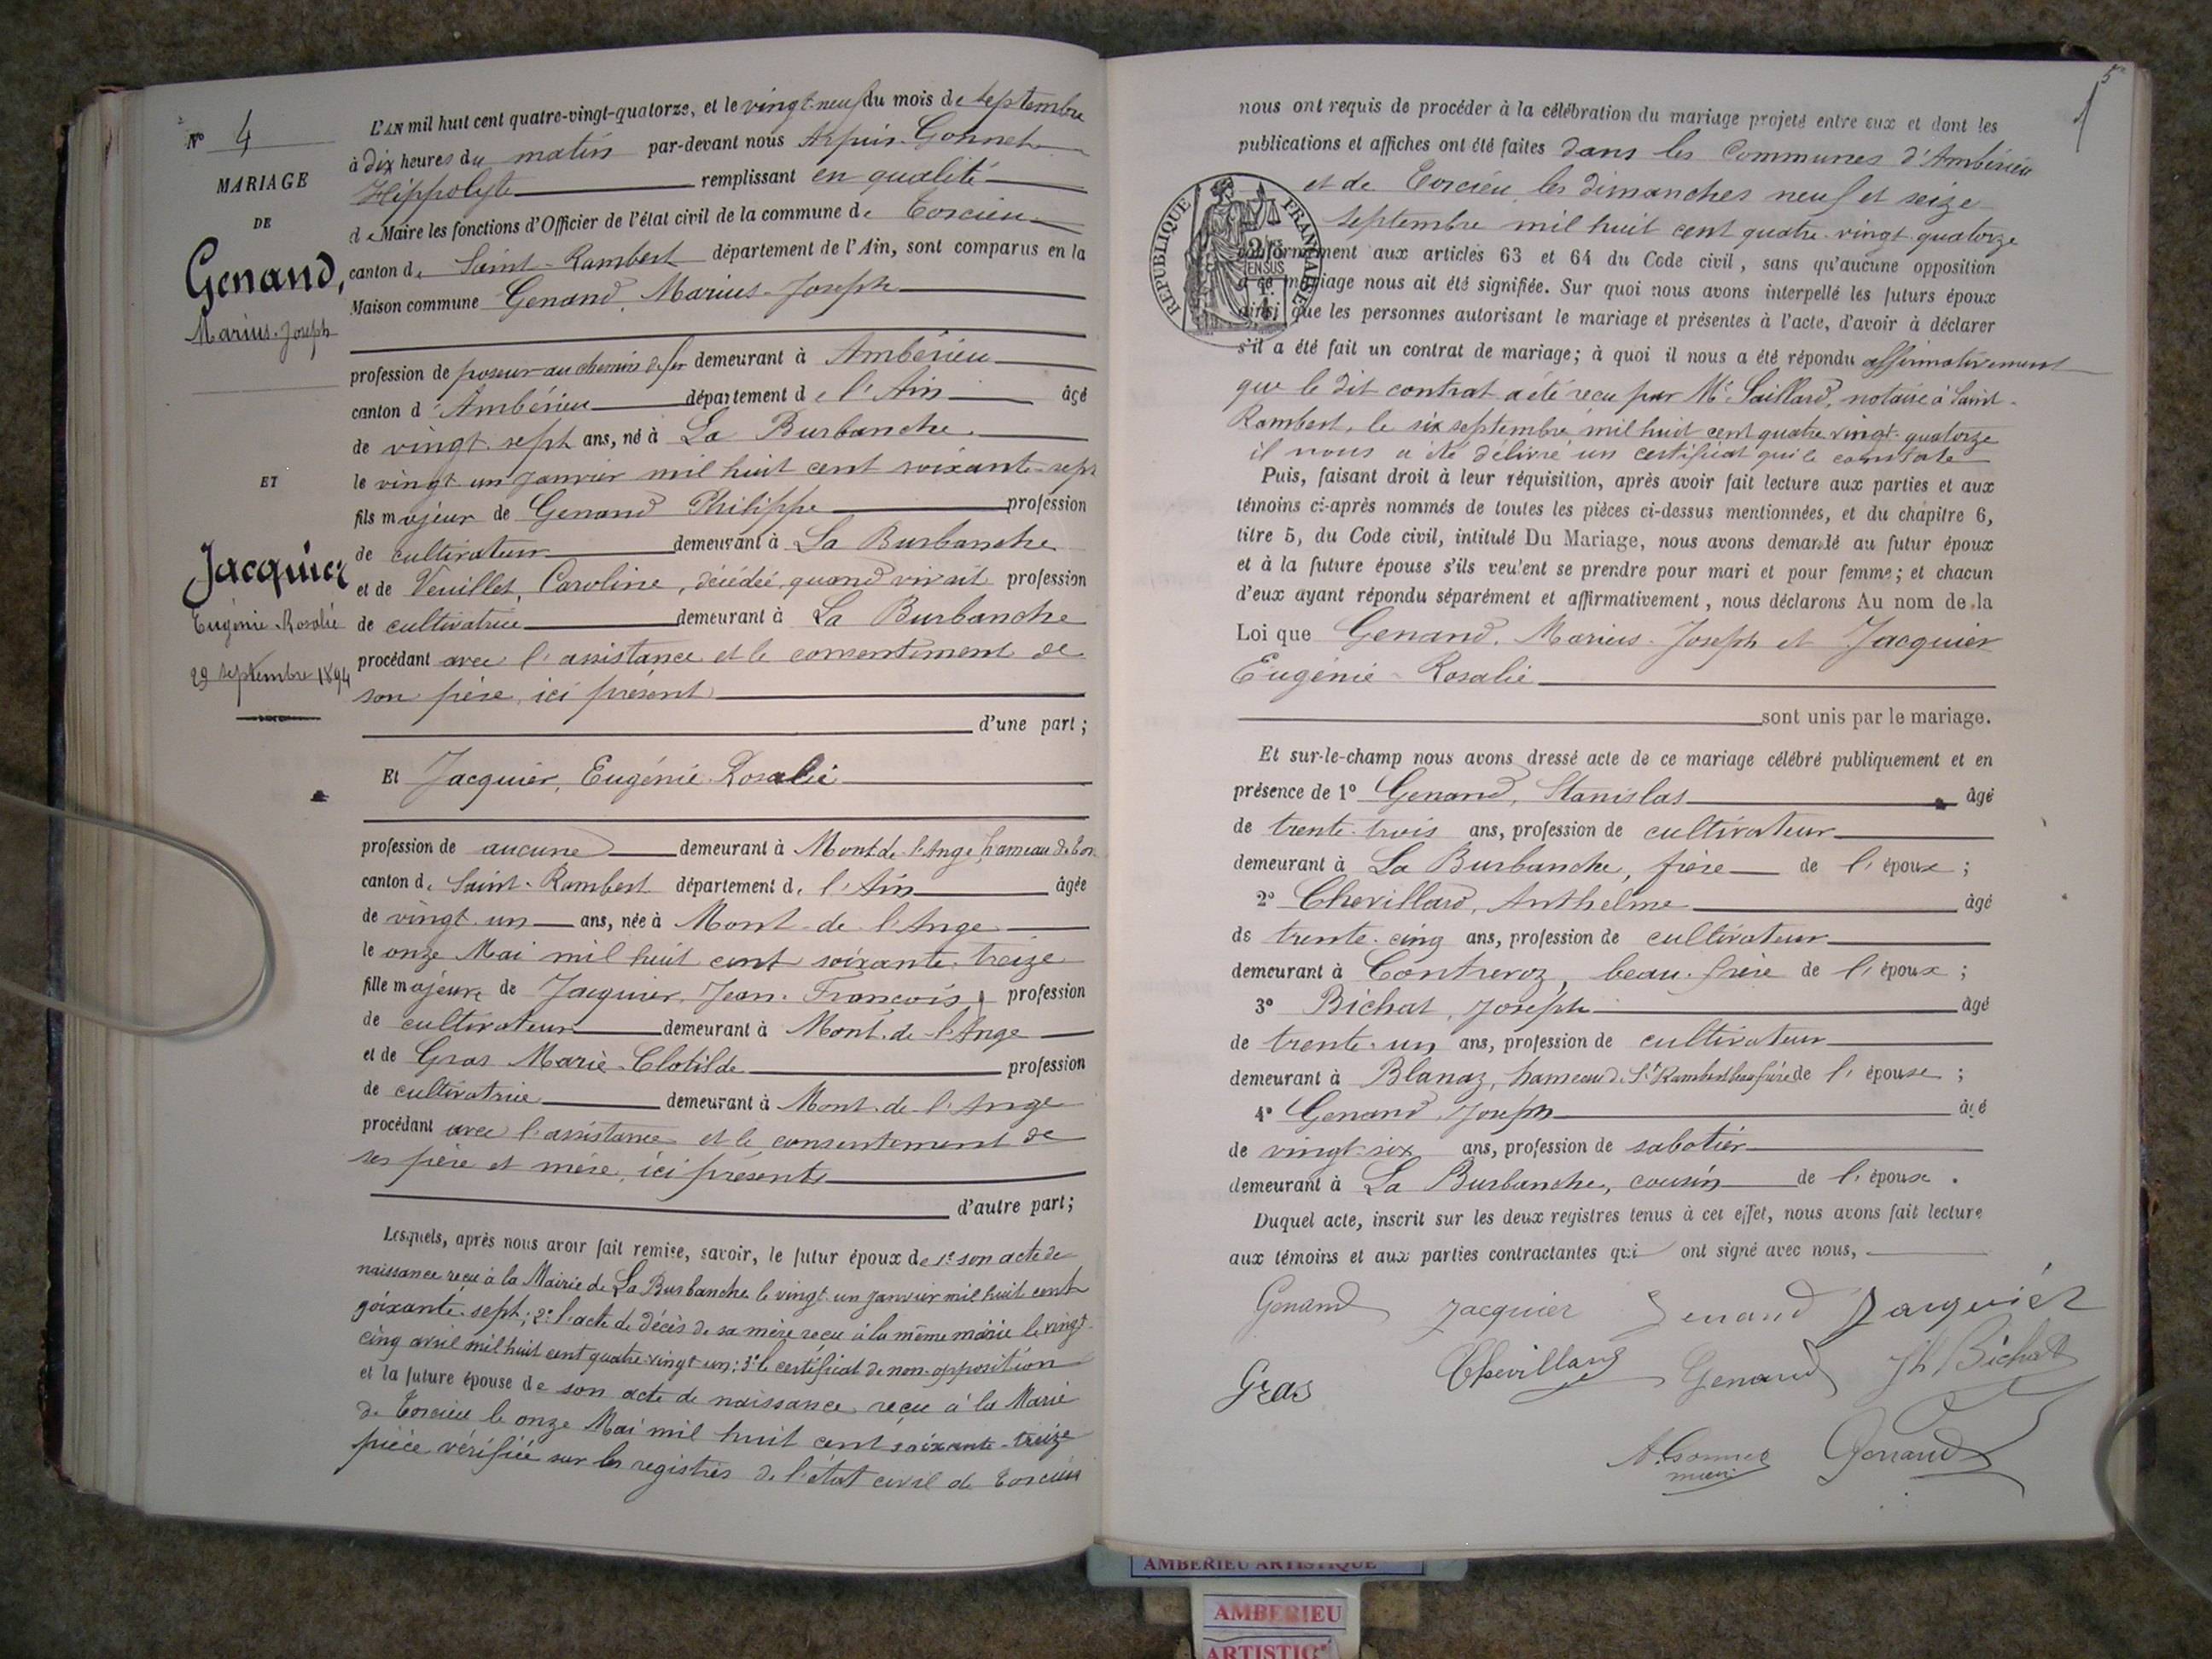 N° 4
MARIAGE
DE
Genand,
Marius-Joseph
ET
Jacquier
Eugénie-Rosalie
29 septembre 1894
L'AN mil huit cent quatre-vingt-quatorze, et le vingt-neuf du mois de septembre
à dix heures du matin par-devant nous Arpin-Gonnet
Hippolyte remplissant en qualité
de Maire les fonctions d'Officier de l'état civil de la commune de Torcieu
canton de Saint-Rambert département de l'Ain, sont comparus en la
Maison commune Genand, Marius-Joseph
profession de poseur au chemin de fer demeurant à Ambérieu
canton d'Ambérieu département de l'Ain âgé
de vingt-sept ans, né à La Burbanche
le vingt-un janvier mil huit cent soixante-sept
fils majeur de Genand Philippe profession
de cultivateur demeurant à La Burbanche
et de Veuillet, Caroline, décédée, quand vivait profession
de cultivatrice demeurant à La Burbanche
procédant avec l'assistance et le consentement de
son père, ici présent
d'une part;
Et Jacquier, Eugénie-Rosalie
profession de aucune demeurant à Mont-de-l'Ange, hameau de Tor
canton de Saint-Rambert département de l'Ain âgée
de vingt-un ans, née à Mont-de-l'Ange
le onze Mai mil huit cent soixante-treize
fille majeure de Jacquier, Jean-François, profession
de cultivateur demeurant à Mont-de-l'Ange
et de Gras Marie-Clotilde profession
de cultivatrice demeurant à Mont-de-l'Ange
procédant avec l'assistance et le consentement de
ses père et mère, ici présents
d'autre part;
Lesquels, après nous avoir fait remise, savoir, le futur époux de 1° son acte de
naissance reçu à la Mairie de La Burbanche le vingt-un janvier mil huit cent
soixante-sept; 2° l'acte de décès de sa mère reçu à la même mairie le vingt-
cinq avril mil huit cent quatre-vingt-un; 3° le certificat de non-opposition
et la future épouse de son acte de naissance reçu à la Marie
de Torcieu le onze Mai mil huit cent soixante-treize
pièce vérifiée sur les registres de l'état civil de Torcieu
5
nous ont requis de procéder à la célébration du mariage projeté entre eux et dont les
publications et affiches ont été faites dans les Communes d'Ambérieu
et de Torcieu, les dimanches neuf et seize
septembre mil huit cent quatre-vingt-quatorze
RÉPUBLIQUE FRANÇAISE
2/10 EN SUS
conformément aux articles 63 et 64 du Code civil, sans qu'aucune opposition
à ce mariage nous ait été signifiée. Sur quoi nous avons interpellé les futurs époux
ainsi que les personnes autorisant le mariage et présentes à l'acte, d'avoir à déclarer
s'il a été fait un contrat de mariage; à quoi il nous a été répondu affirmativement
que le dit contrat a été reçu par Me Saillard, notaire à Saint-
Rambert, le six septembre mil huit cent quatre-vingt-quatorze
il nous a été délivré un certificat qui le constate
Puis, faisant droit à leur réquisition, après avoir fait lecture aux parties et aux
témoins ci-après nommés de toutes les pièces ci-dessus mentionnées, et du chapitre 6,
titre 5, du Code civil, intitulé Du Mariage, nous avons demandé au futur époux
et à la future épouse s'ils veulent se prendre pour mari et pour femme; et chacun
d'eux ayant répondu séparément et affirmativement, nous déclarons Au nom de la
Loi que Genand, Marius-Joseph et Jacquier
Eugénie-Rosalie
sont unis par le mariage.
Et sur-le-champ nous avons dressé acte de ce mariage célébré publiquement et en
présence de 1° Genand, Stanislas âgé
de trente-trois ans, profession de cultivateur
demeurant à La Burbanche, frère de l'époux;
2° Chevillard, Anthelme âgé
de trente-cinq ans, profession de cultivateur
demeurant à Contrevoz, beau-frère de l'époux;
3° Bichat, Joseph âgé
de trente-un ans, profession de cultivateur
demeurant à Blanaz, hameau de St Rambert beau frère de l'épouse;
4° Genand, Joseph âgé
de vingt-six ans, profession de sabotier
demeurant à La Burbanche, cousin de l'époux.
Duquel acte, inscrit sur les deux registres tenus à cet effet, nous avons fait lecture
aux témoins et aux parties contractantes qui ont signé avec nous,
Genand Jacquier Genand Jacquier
Gras Chevillard Genand Jh Bichat
A. Gonnet Genand
maire
AMBERIEU ARTISTIQUE
AMBERIEU
ARTISTIQ